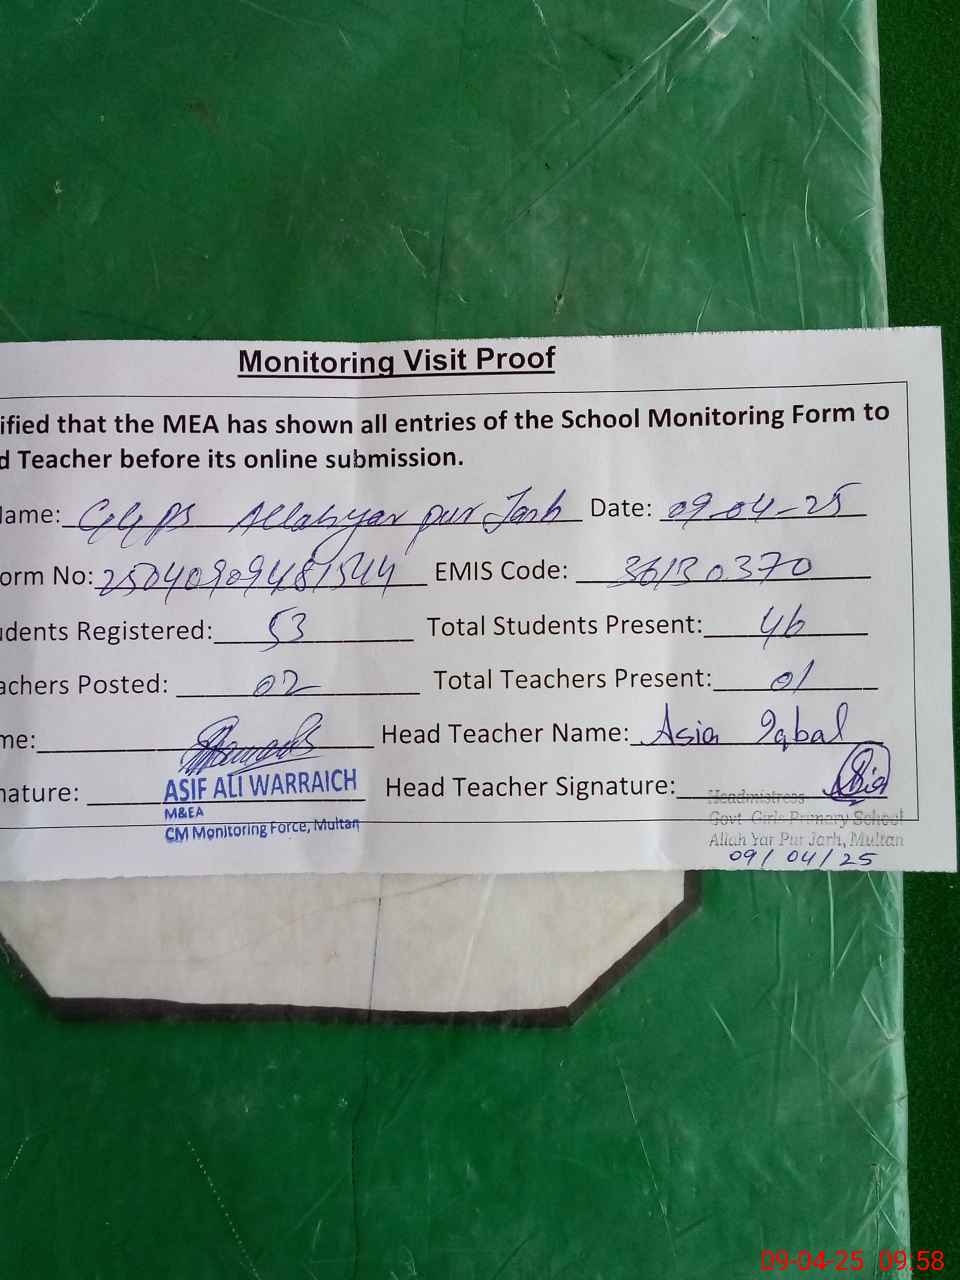 Monitoring Visit Proof
ified that the MEA has shown all entries of the School Monitoring Form to
d Teacher before its online submission.
Name: GGPS Allahyar pur Jarh Date: 09-04-25
orm No: 25040909481544 EMIS Code: 36130370
udents Registered: 53 Total Students Present: 46
achers Posted: 02 Total Teachers Present: 01
me: Head Teacher Name: Asia Iqbal
nature: Head Teacher Signature:
ASIF ALI WARRAICH
M&EA
CM Monitoring Force, Multan
Headmistress
Govt. Girls Primary School
Allah Yar Pur Jarh, Multan
09/04/25
09-04-25 09:58